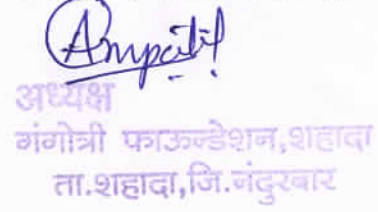 Ampatil
अध्यक्ष
गंगोत्री फाऊन्डेशन,शहादा
ता.शहादा,जि.नंदुरबार